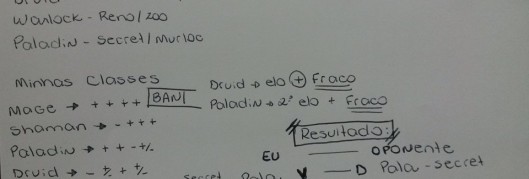 Warlock - Reno/zoo
Paladin - Secret/Murloc
Minhas Classes
Mage → + + + + BAN!
Shaman → - + + +
Paladin → + + - +/-
Druid → - +/- + +/-
Druid → elo + Fraco
Paladin → 2º elo + Fraco
Resultado:
EU —— OPONENTE
Secret Pala. V —— D Pala - secret